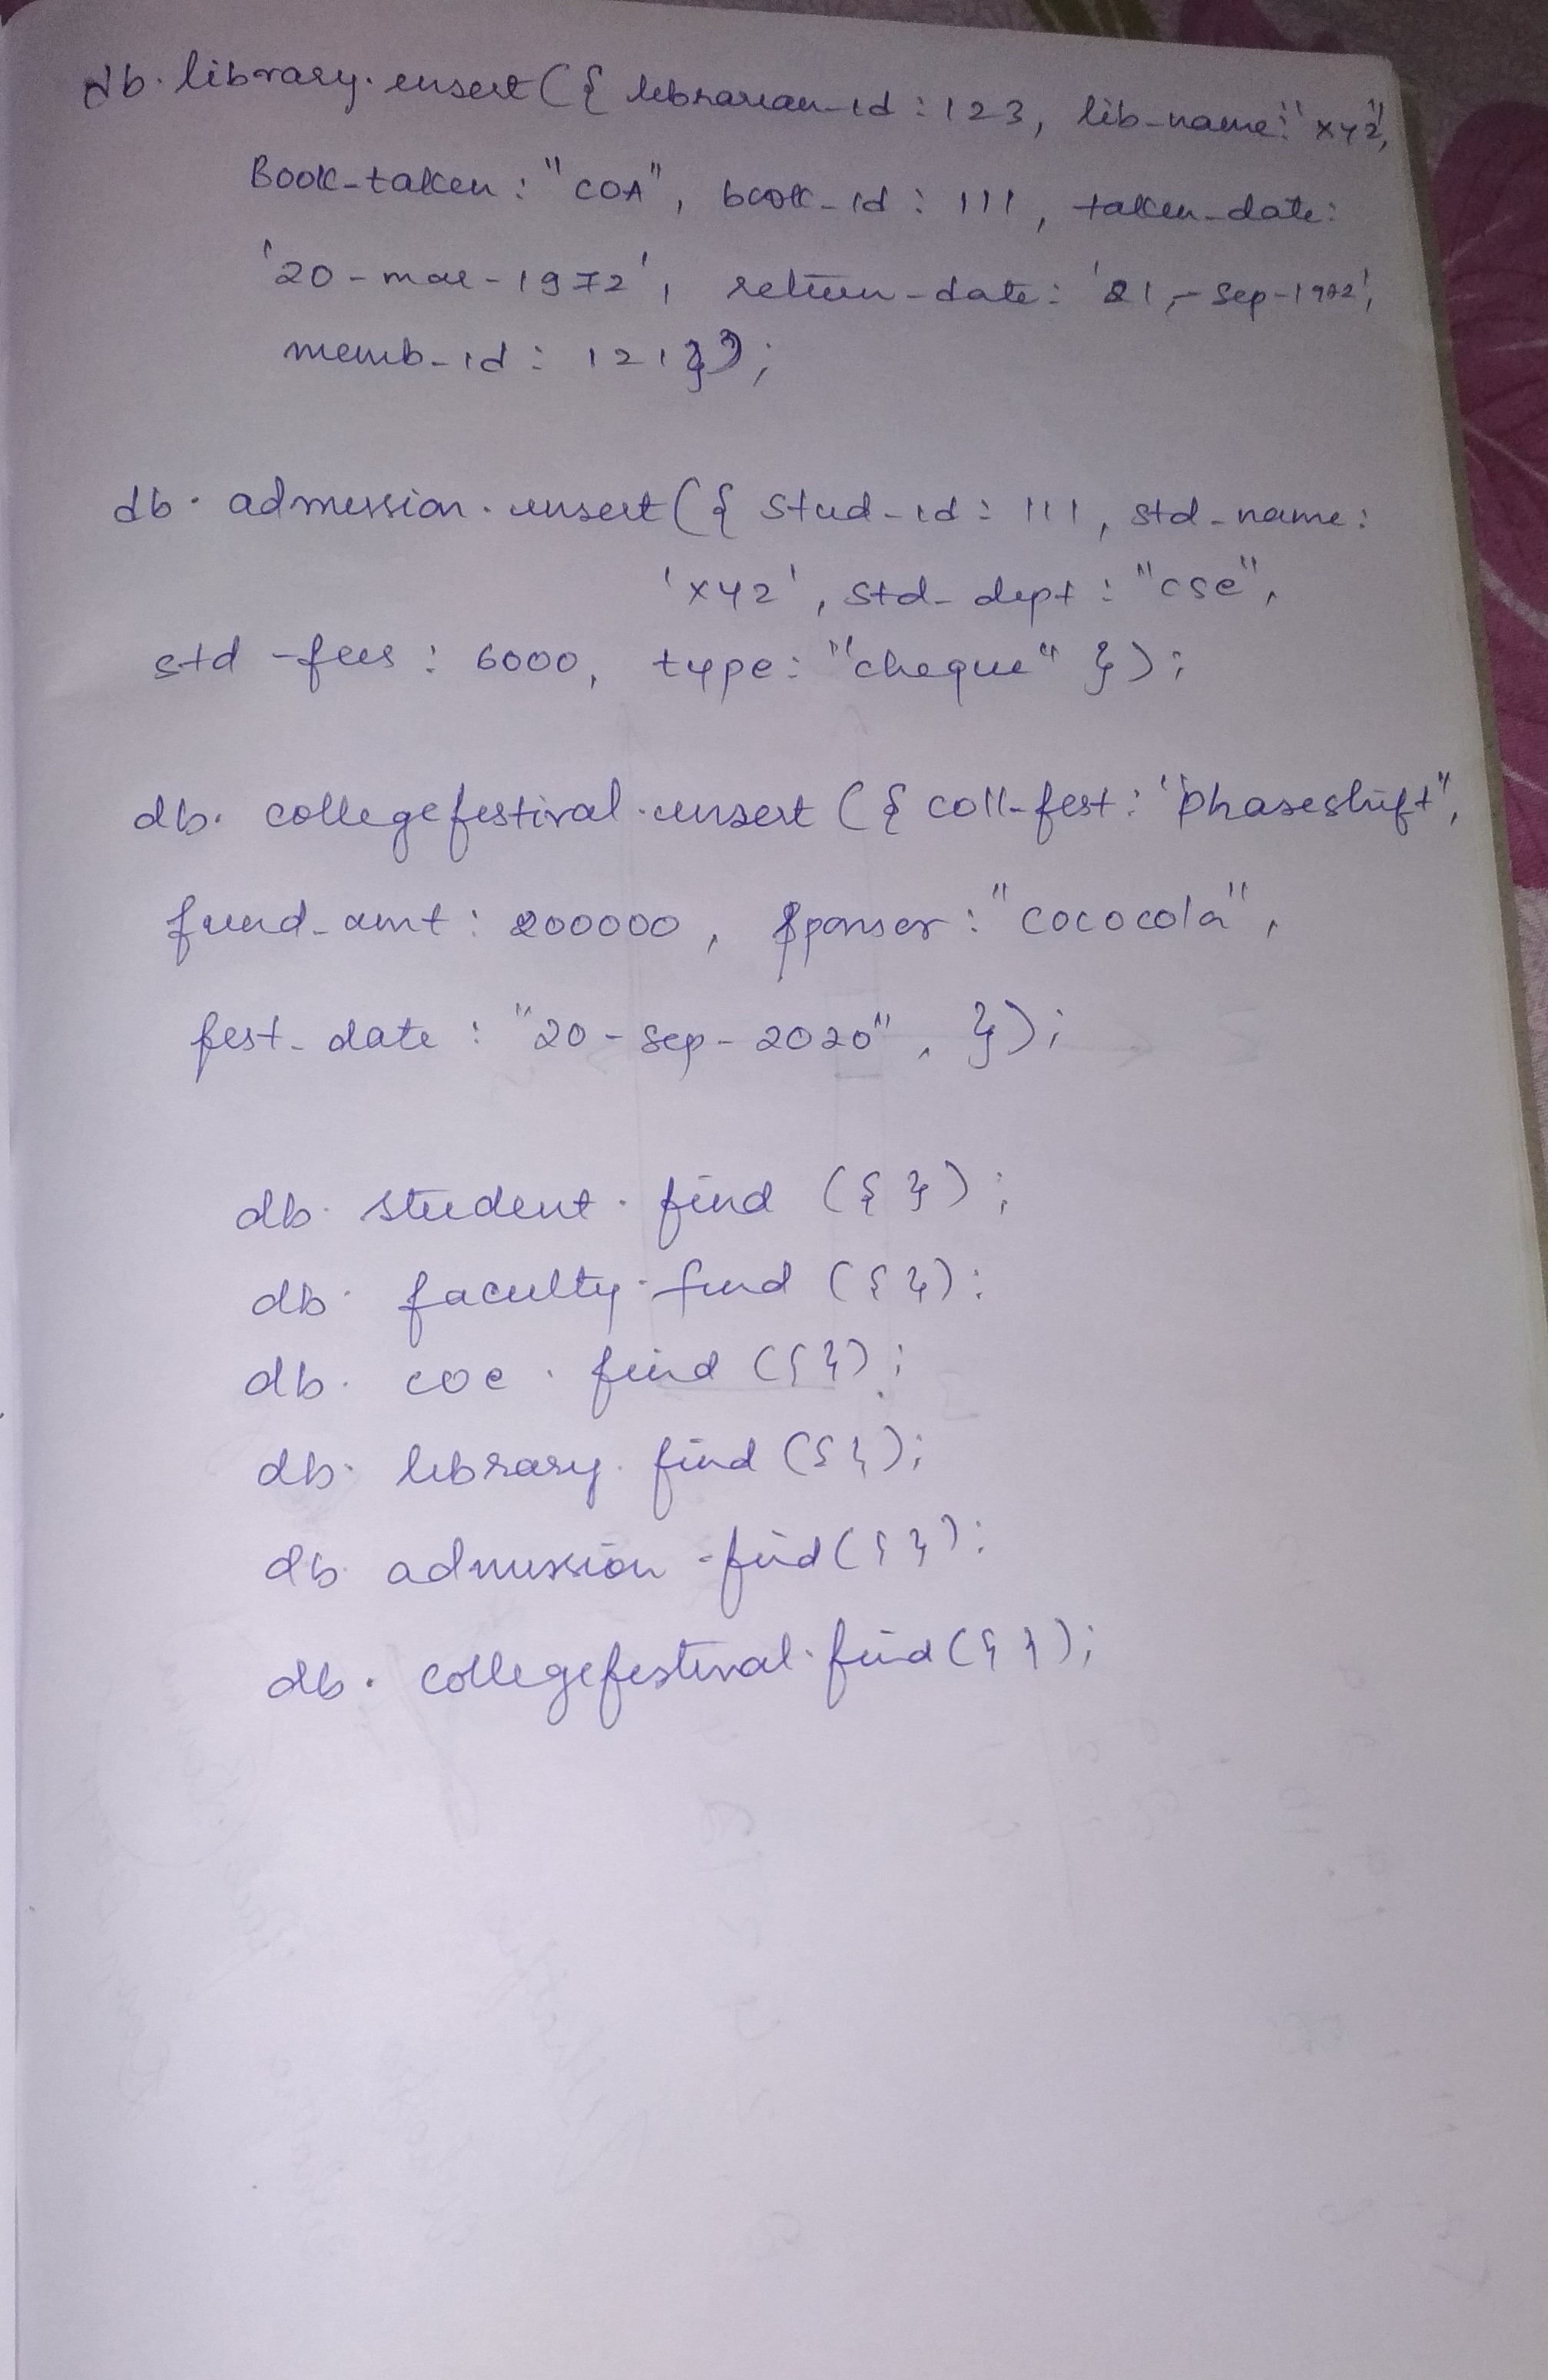 db.library.insert({ librarian_id : 123, lib_name: "xyz",
Book_taken : "COA", book_id : 111, taken_date:
'20-mar-1972', return_date: '21-Sep-1972',
memb_id : 121});
db.admission.insert({ Stud_id : 111, std_name:
'xyz', std_dept : "cse",
std_fees : 6000, type: "cheque" });
db.collegefestival.insert({ coll_fest: "phaseshift",
fund_amt : 200000, sponser : "cococola",
fest_date : "20-sep-2020", });
db.student.find({ });
db.faculty.find({ });
db.coe.find({ });
db.library.find({ });
db.admission.find({ });
db.collegefestival.find({ });